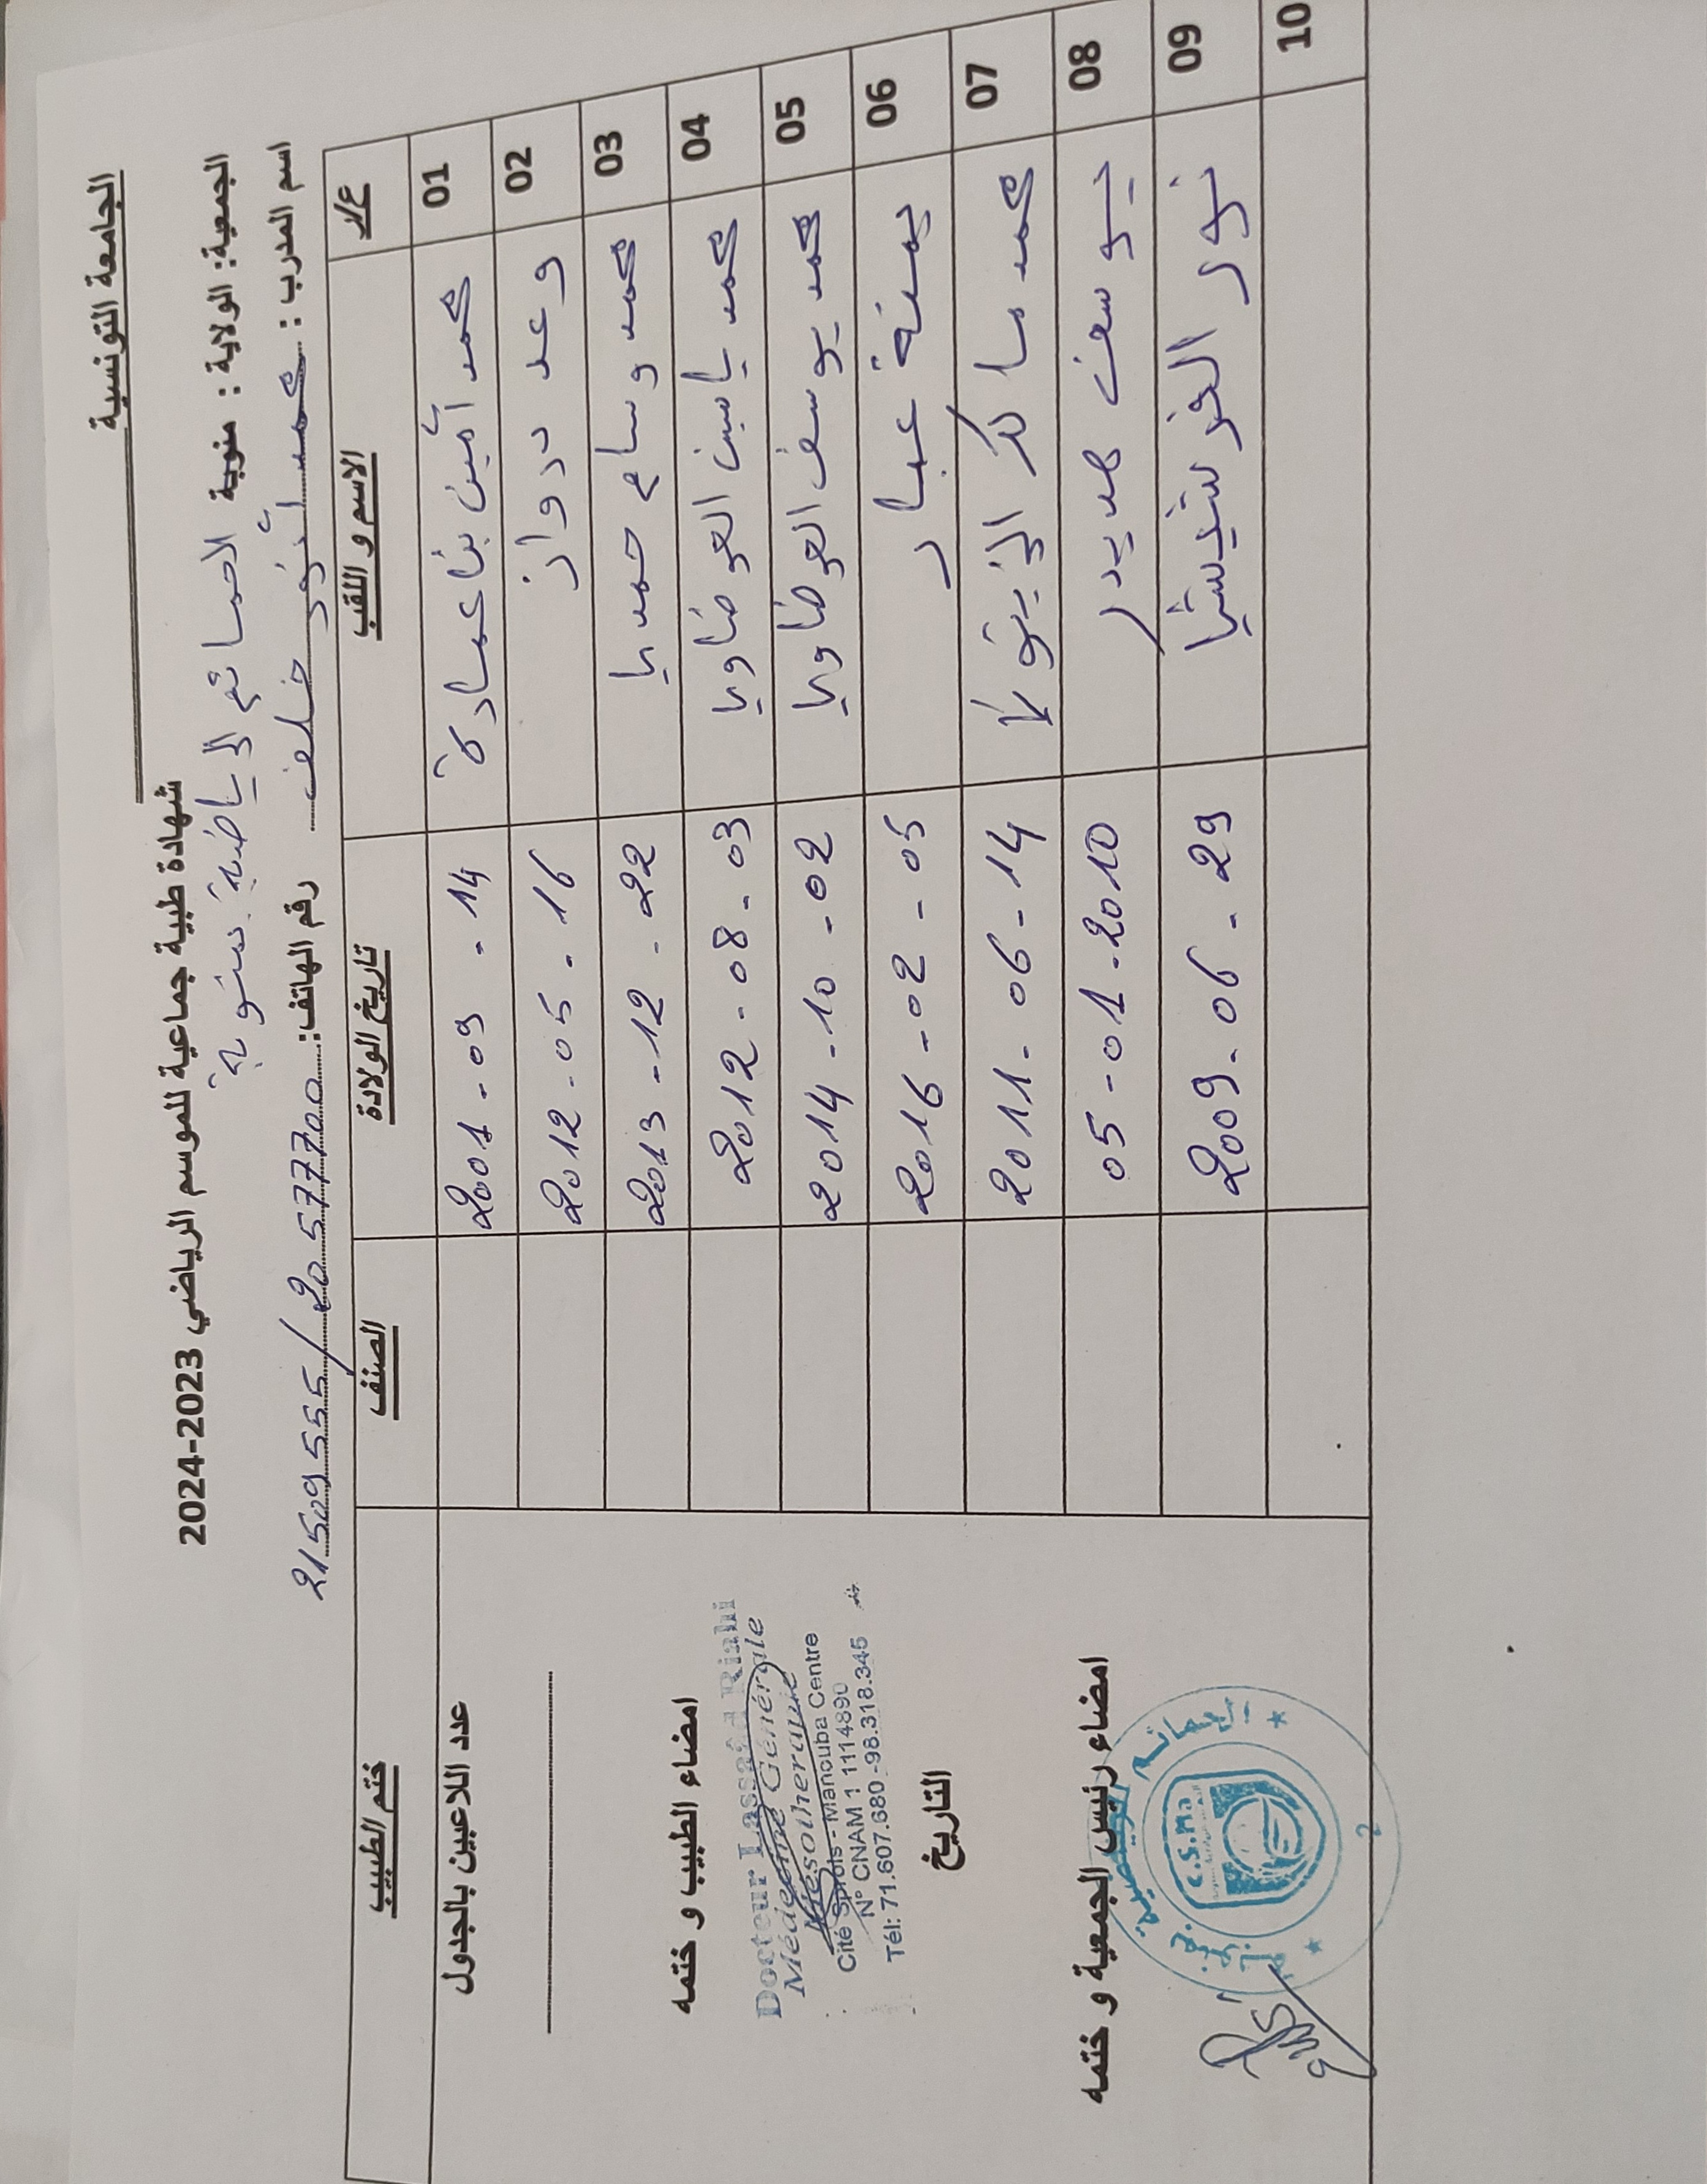 الجامعة التونسية
شهادة طبية جماعية للموسم الرياضي 2023-2024
الجمعية: الولاية : منوبة الحمائم الرياضية بمنوبة
اسم المدرب : محمد أنور خلف رقم الهاتف: 20577700 / 21509555
ع/ر الاسم و اللقب تاريخ الولادة الصنف ختم الطبيب
01 محمد أمين بناعمارة 2001 - 09 - 14
02 وعد درواز 2012 - 05 - 16
03 محمد وسام حمدي 2013 - 12 - 22
04 محمد ياسين العوضاوي 2012 - 08 - 03
05 محمد يوسف العوضاوي 2014 - 10 - 02
06 يمنة عبار 2016 - 02 - 05
07 محمد 2011 - 06 - 14
08 يوسف 05 - 01 - 2010
09 نور 2009 - 06 - 29
10
عدد اللاعبين بالجدول
امضاء الطبيب و ختمه
Docteur Lassaâd Riahi
Médecine Générale
Mésothérapie
Cité Sprols - Manouba Centre
N° CNAM 1 1114890
Tél: 71.607.680 -98.318.345
التاريخ
امضاء رئيس الجمعية و ختمه
C.S.Ma